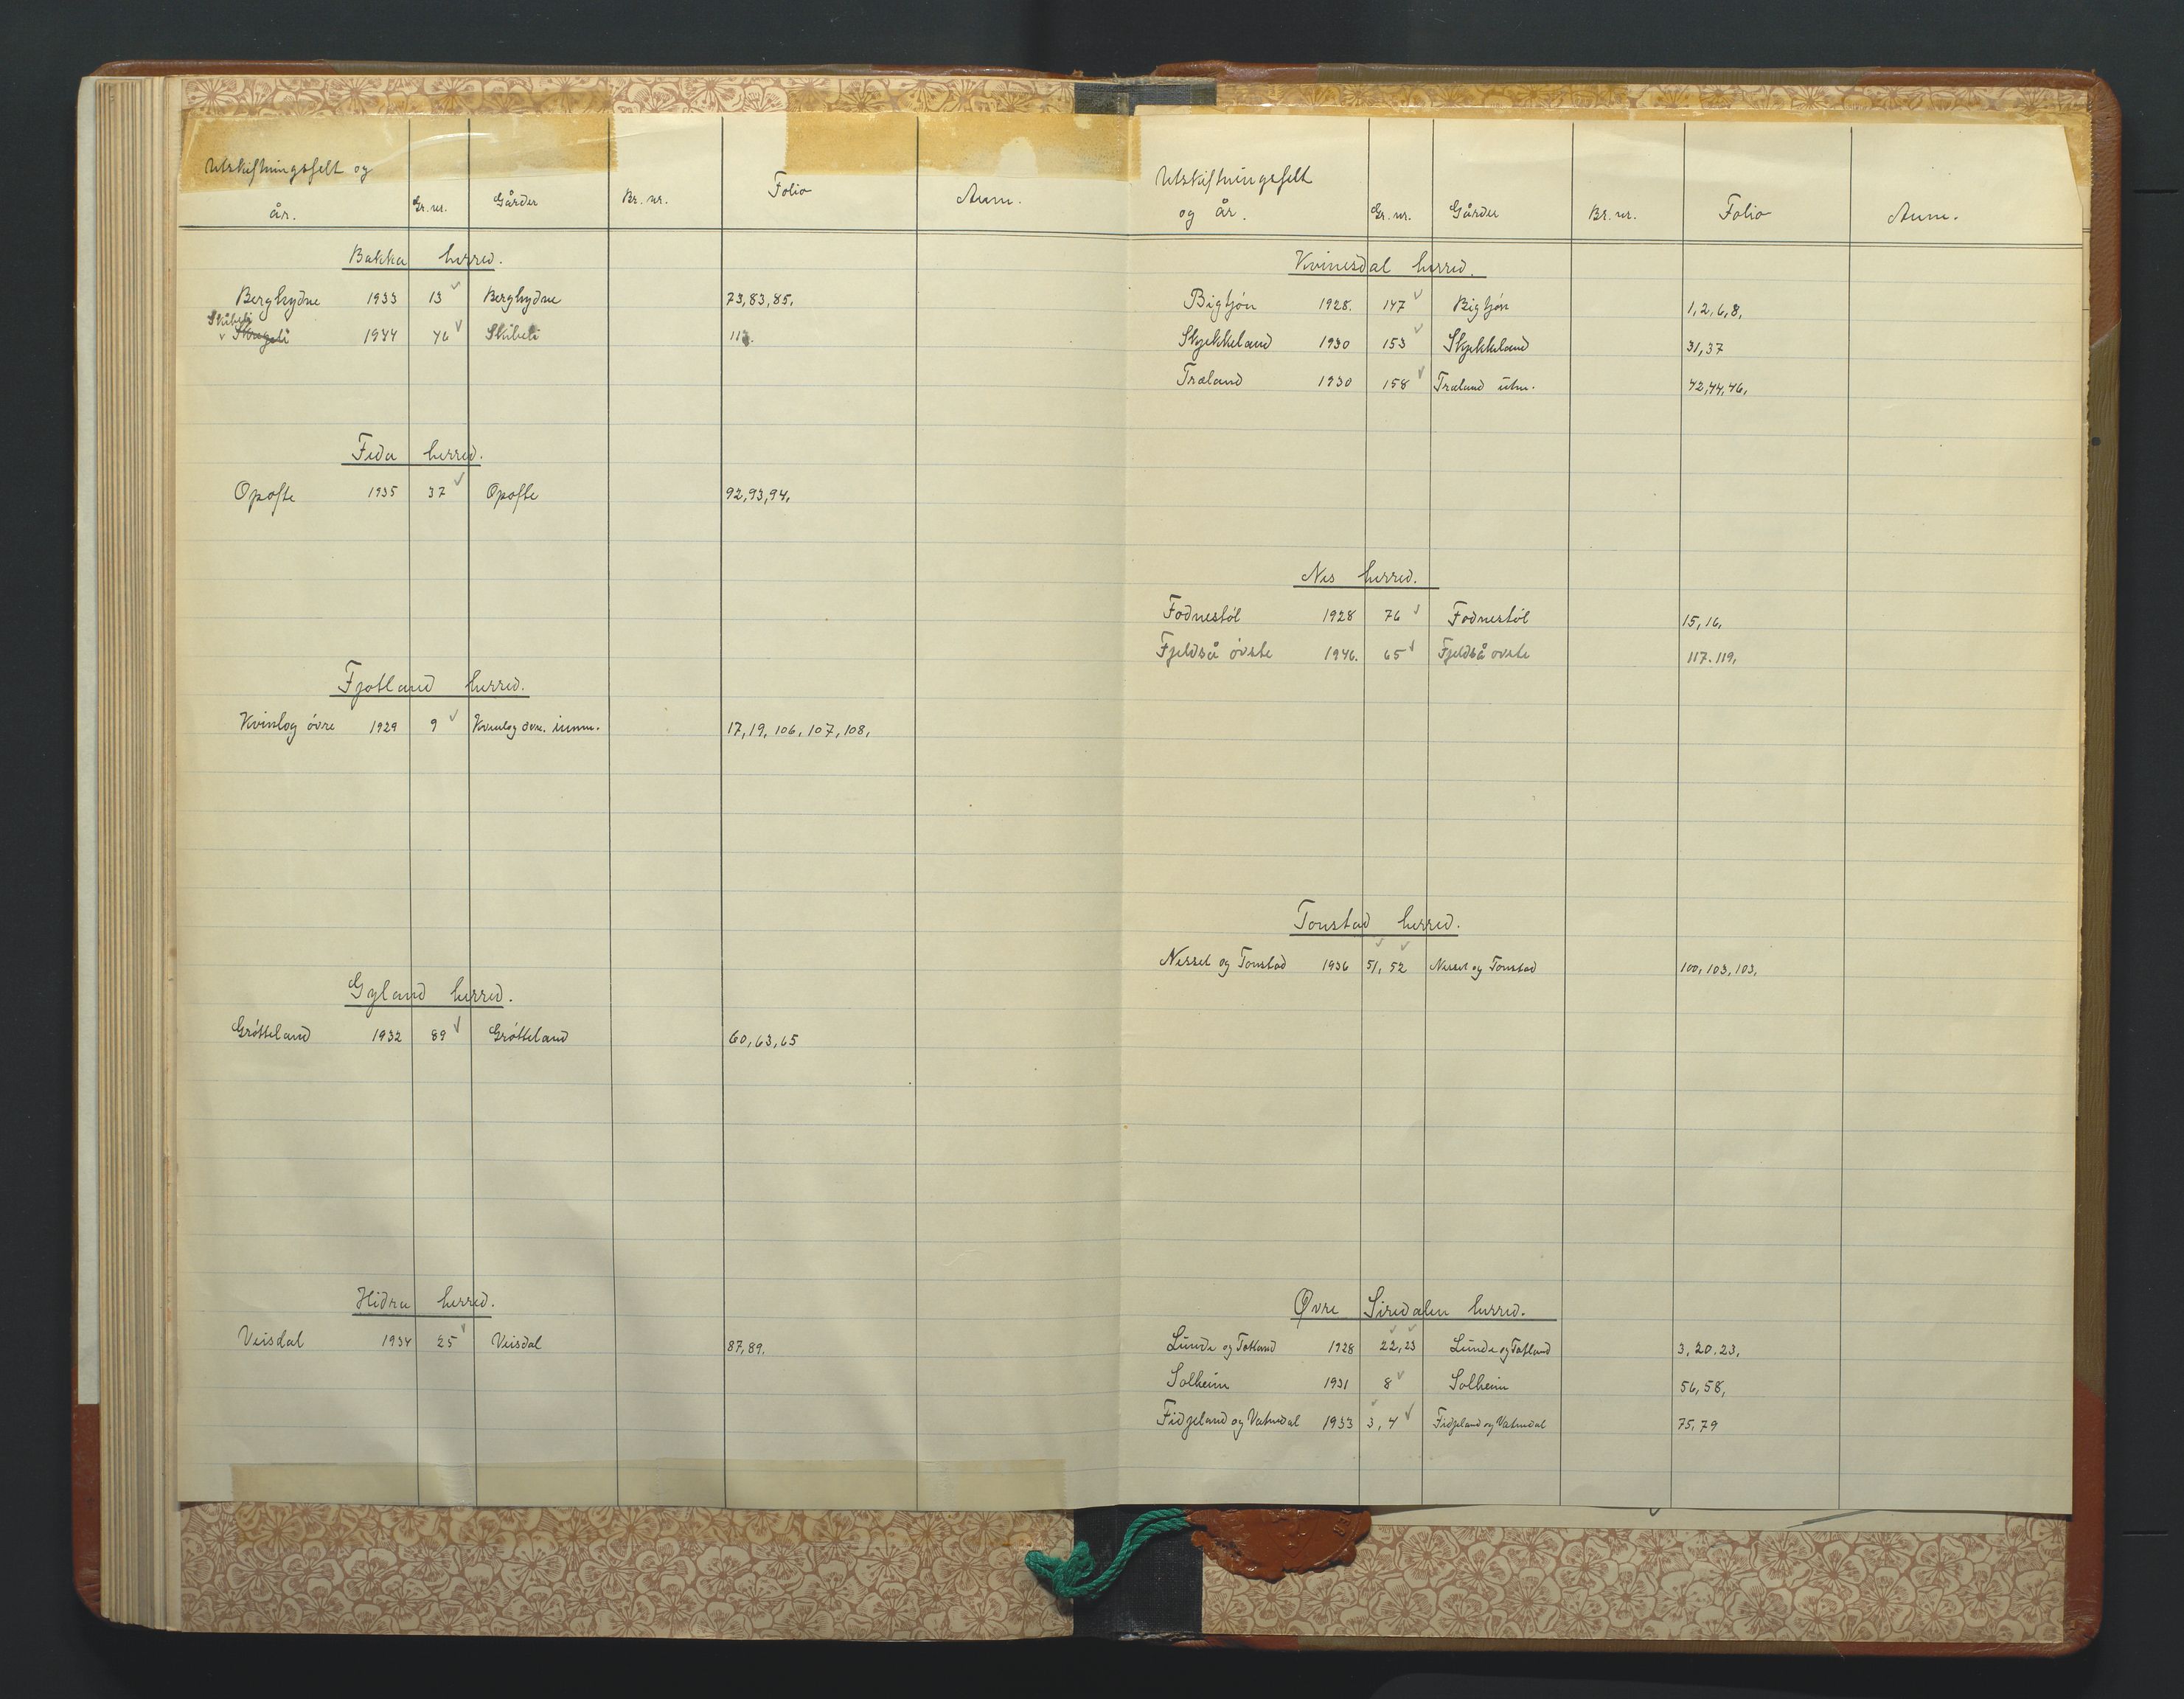 Utskiftningsfelt og
år. Gr. nr. Gårder Br. nr. Folio Anm.
Bakke herred.
Berghydne 1933 13 Berghydne 73, 83, 85,
Skibeli
1944 46 Skibeli
Feda herred.
Opofte 1935 37 Opofte 92, 93, 94,
Fjotland herred.
Kvinlog övre 1929 9 Kvinlog övre. innm. 17, 19, 106, 107, 108,
Gyland herred.
Grötteland 1932 89 Grötteland 60, 63, 65
Hidra herred.
Veisdal 1934 25 Veisdal 87, 89.
Utskiftningsfelt
og år. Gr. nr. Gårder Br. nr. Folio Anm.
Kvinesdal herred.
Bigtjön 1928. 147 Bigtjön 1, 2, 6, 8,
Stjekkeland 1930 153 Stjekkeland 31, 37
Træland 1930 158 Træland utm. 42, 44, 46,
Nes herred.
Fodnestöl 1928 76 Fodnestöl 15, 16,
Fjeldså övste 1946. 65 Fjeldså övste 117. 119,
Tonstad herred.
Nesset og Tonstad 1936 51, 52 Nesset og Tonstad 100, 103, 103,
Øvre Siredalen herred.
Lunde og Totland 1928 22, 23 Lunde og Totland 3, 20. 23,
Solheim 1931 8 Solheim 56, 58,
Fidjeland og Vatnedal 1933 3, 4 Fidjeland og Vatnedal 75, 79